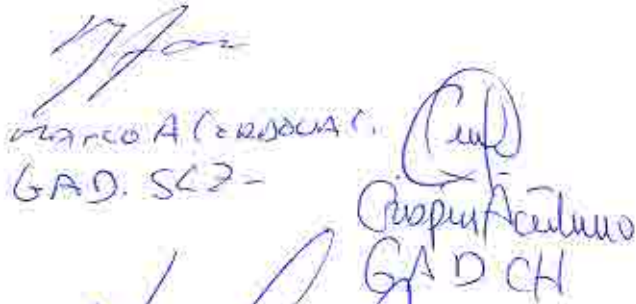 MARCO A CORDOVA C.
GAD. SCZ-
Crispin Aceituno
GAD CH